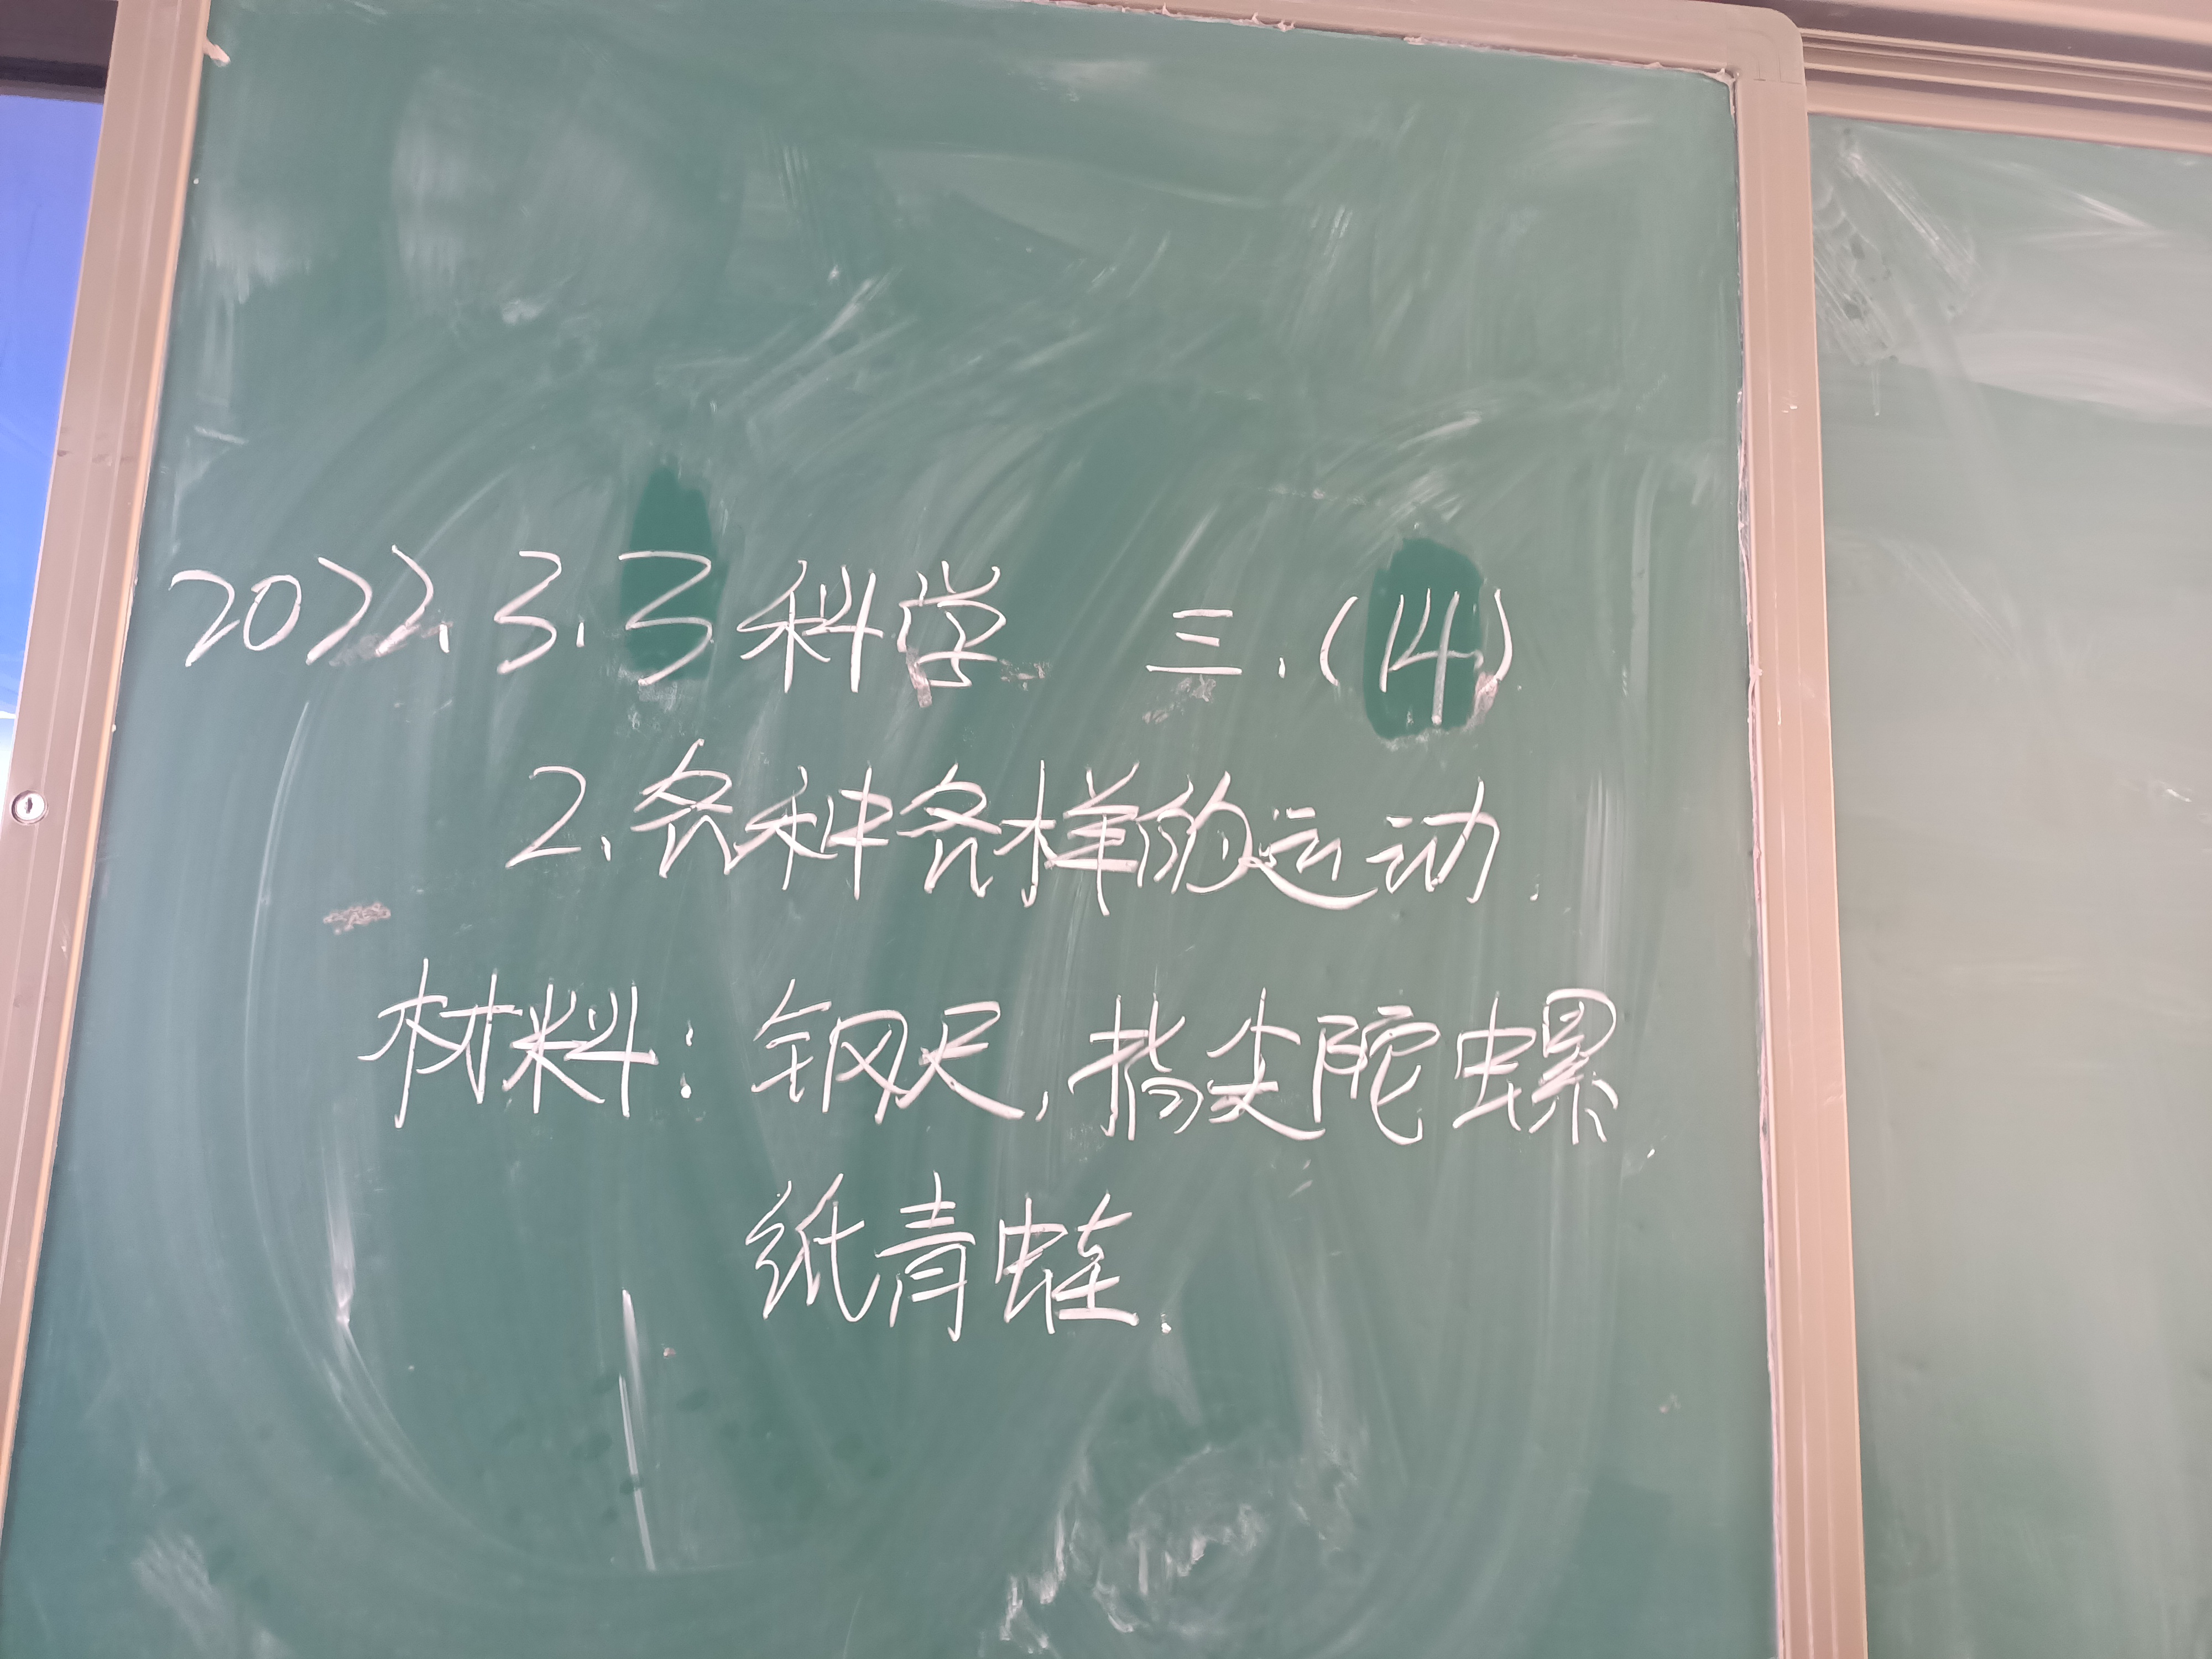 2022.3.3科学 三.(14)
2.各种各样的运动.
材料:钢尺,指尖陀螺.
纸青蛙.